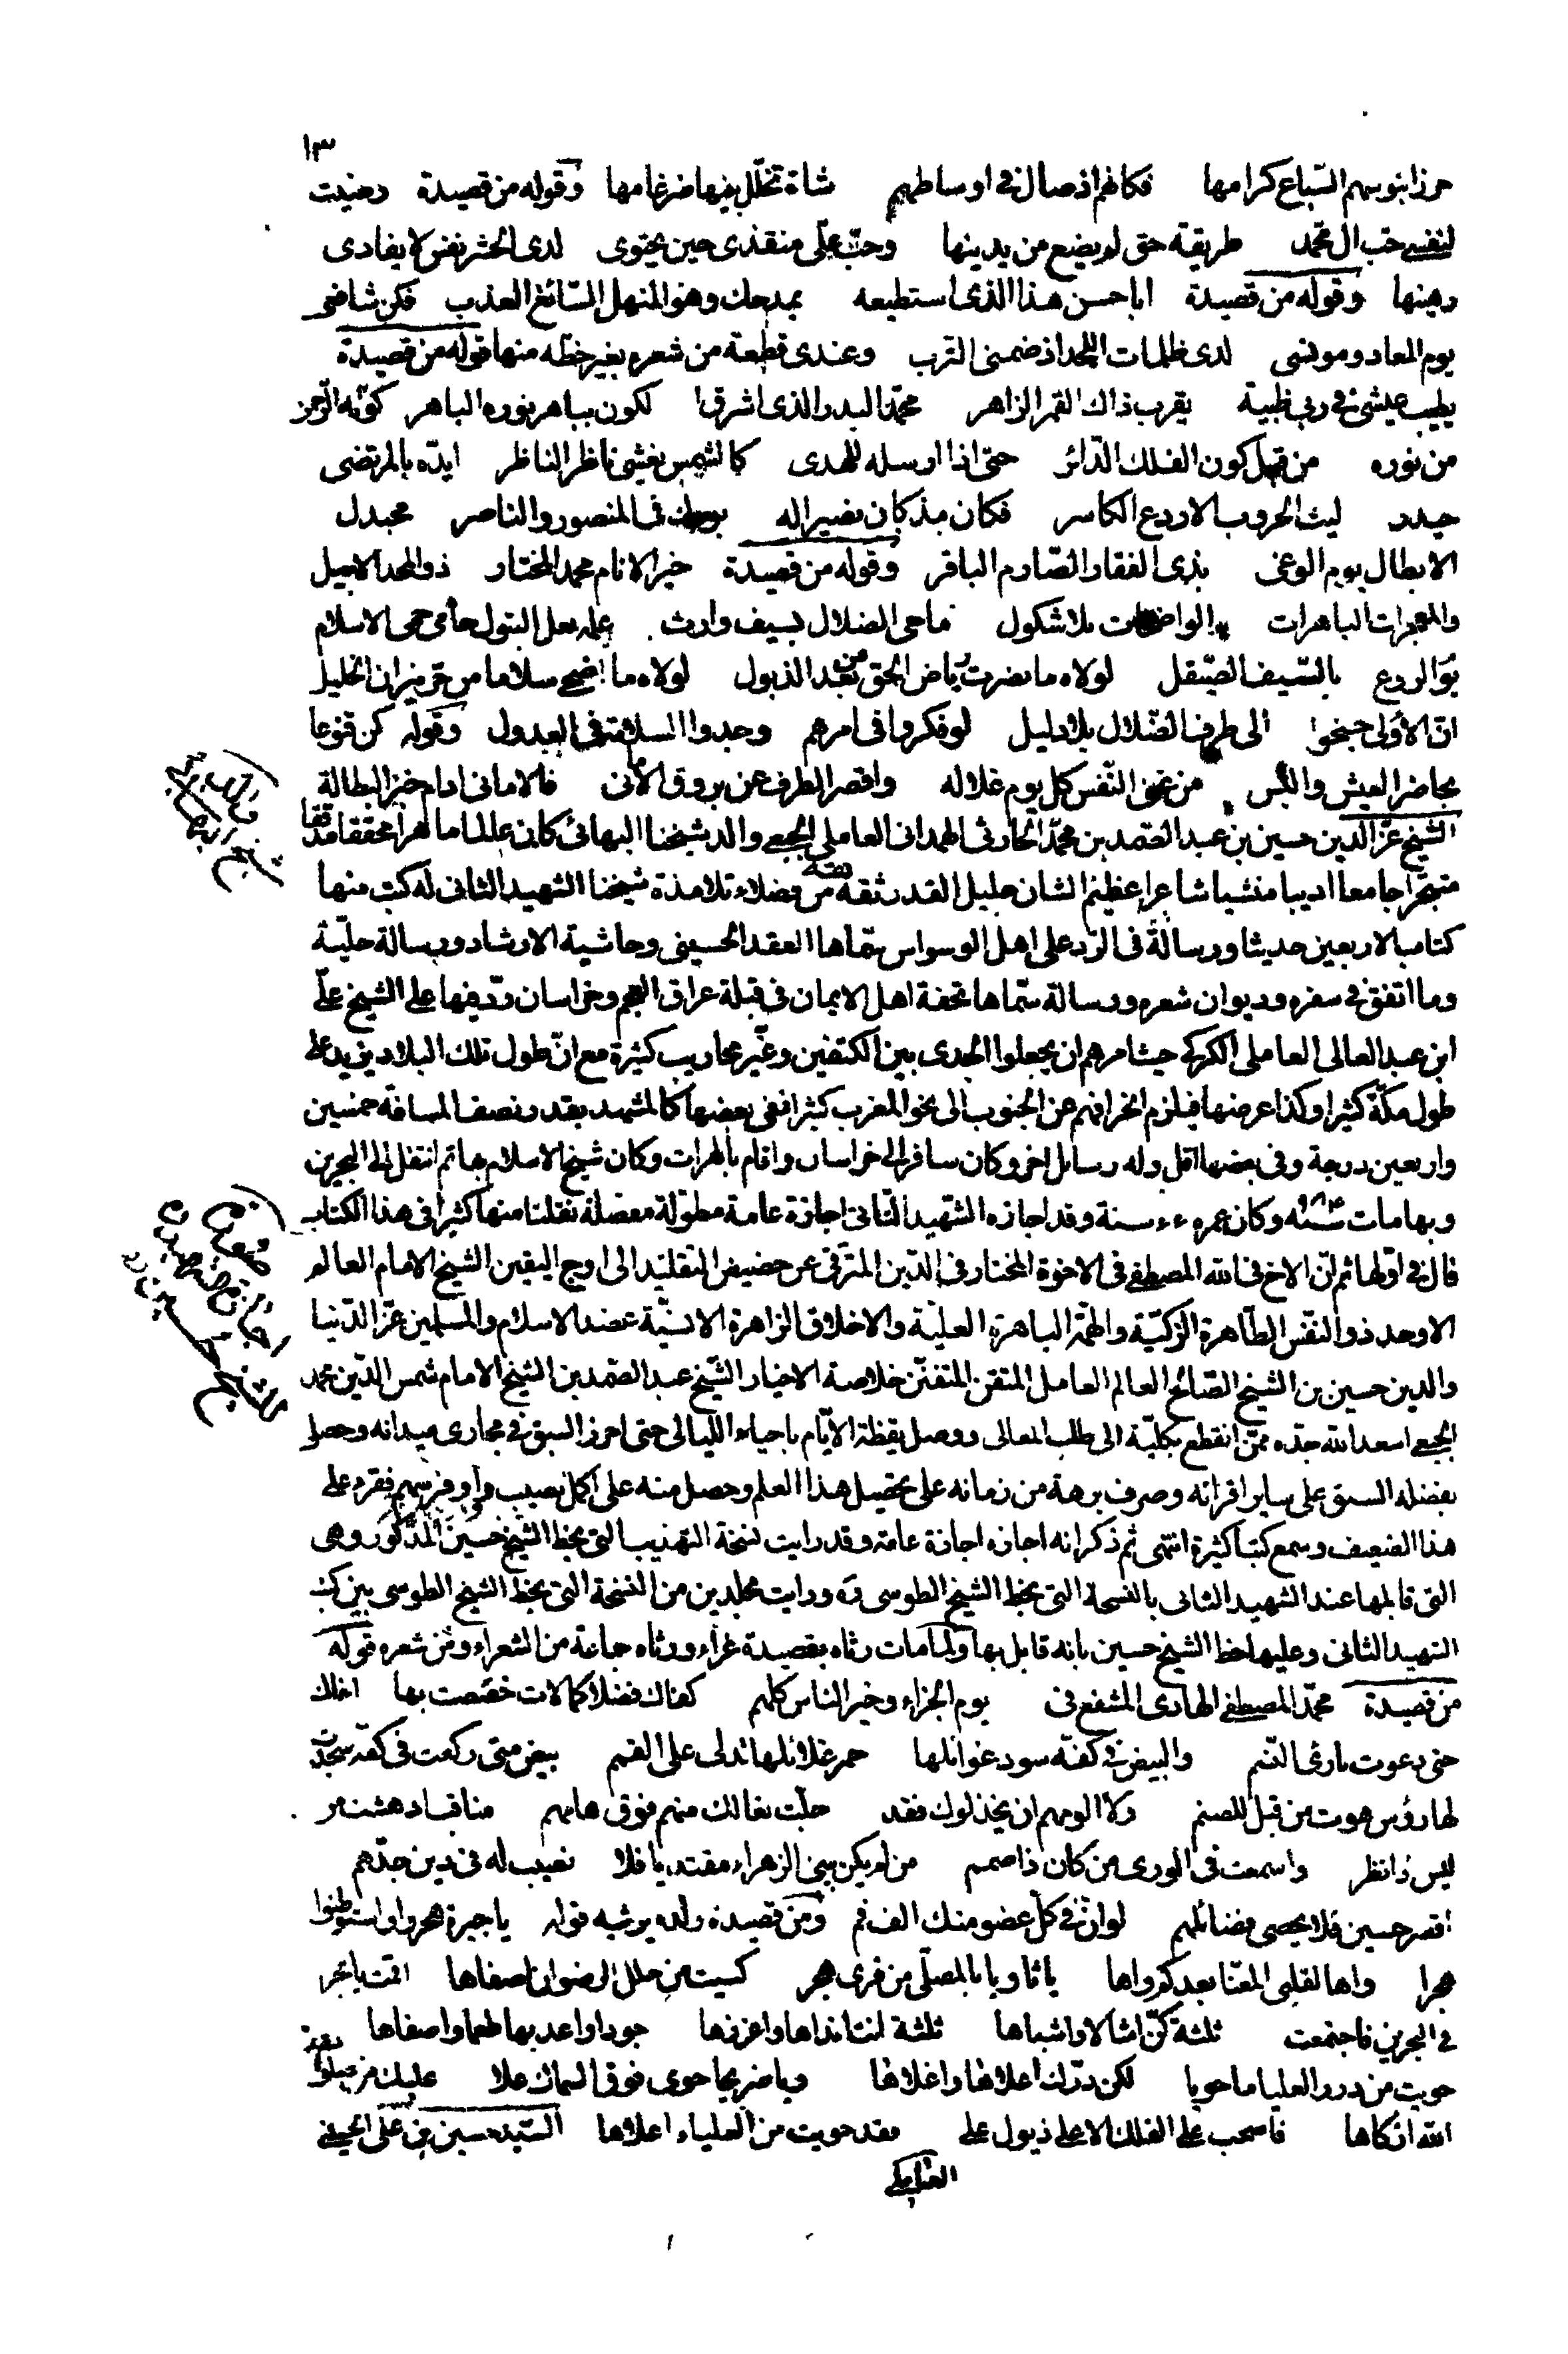 ١٣
حرزا بنوبهم السباع كرامها فكانهم اذ صال في اوساطهم شاة تخلل بينها ضرغامها وقوله من قصيدة رضيت
لنفسي حب ال محمد طريقة حق لم يضع من يدينها وحب علي منقذي حين يحتوى لدى الحشر نفس لا يفادى
رهينها وقوله من قصيدة ابا حسن هذا الذى استطيعه بمدحك وهو المنهل السائغ العذب فكن شافعي
يوم المعاد ومونسى لدى ظلمات اللحد اذ ضمنى الترب وعندى قطعة من شعره بغير خطه منها قوله من قصيدة
يطيب عيشي في ربى طيبة بقرب ذاك القمر الزاهر محمد البدر الذى اشرق ا لكون بباهر نوره الباهر كونه الرحمن
من نوره من قبل كون الفلك الدائر حتى اذا ارسله للهدى كالشمس يغشى ناظر الناظر ايده بالمرتضى
حيدر ليث الحروب الاروع الكاسر فكان مذ كان نصيرا له بورك فى المنصور والناصر مجدل
الابطال يوم الوغى بذى الفقار الصارم الباقر وقوله من قصيدة خير الانام محمد المختار ذو المجد الاثيل
والمعجزات الباهرات الواضحات بلا شكول ماحى الضلال بسيف وارث علمه بعل البتول حامى حمى الاسلام
يوم الروع بالسيف الصقيل لولاه ما نضرت رياض الحق من بعد الذبول لولاه ما اضحى سلاما من حر نيران الخليل
ان الاولى جنحوا الى طرف الضلال بلا دليل لو فكروا فى امرهم وجدوا السلامة فى العدول وقوله كن قنوعا
بحاضر العيش والبس من تمنى النفس كل يوم غلاله واقصر الطرف عن بروق الامانى فالامانى ادام خبز البطالة
الشيخ عز الدين حسين بن عبد الصمد بن محمد الحارثى الهمدانى العاملى الجبعي والد شيخنا البهائى كان عالما ماهرا محققا مدققا
متبحرا جامعا اديبا منشيا شاعرا عظيم الشان جليل القدر ثقة ثقة من فضلاء تلامذة شيخنا الشهيد الثانى له كتب منها
كتاب الاربعين حديثا ورسالة فى الرد على اهل الوسواس سماها العقد الحسينى وحاشية الارشاد ورسالة حلية
وما اتفق في سفره وديوان شعره ورسالة سماها تحفة اهل الايمان فى قبلة عراق العجم وخراسان رد فيها على الشيخ على
ابن عبد العالى العاملى الكركي حيث امرهم ان يجعلوا الجدى بين الكتفين وغير محاريب كثيرة مع ان طول تلك البلاد يزيد على
طول مكة كثيرا وكذا عرضها فيلزم انحرافهم عن الجنوب الى نحو المغرب كثيرا ففى بعضها كالمشهد بقدر نصف المسافة خمسين
واربعين درجة وفى بعضها اقل وله رسايل اخر وكان سافر الى خراسان واقام بالهرات وكان شيخ الاسلام بها ثم انتقل الى البحرين
وبها مات سنة وكان عمره ٦٦ سنة وقد اجازه الشهيد الثانى اجازة عامة مطولة مفصلة نقلنا منها كثيرا فى هذا الكتاب
قال في اولها ثم ان الاخ فى الله المصطفى فى الاخوة المختار فى الدين المترقى عن حضيض التقليد الى اوج اليقين الشيخ الامام العالم
الاوحد ذو النفس الطاهرة الزكية والهمة الباهرة العلية والاخلاق الزاهرة الانسية عضد الاسلام والمسلمين عز الدنيا
والدين حسين بن الشيخ الصالح العالم العامل المتقن المتفنن خلاصة الاخيار الشيخ عبد الصمد بن الشيخ الامام شمس الدين محمد
الجبعي اسعد الله جده ممن انقطع بكليته الى طلب المعالى ووصل يقظة الايام باحياء الليالى حتى احرز السبق في مجارى ميدانه وحصل
بفضله السبق على ساير اقرانه وصرف برهة من زمانه على تحصيل هذا العلم وحصل منه على اكمل نصيب واوفر سهم فقرء على
هذا الضعيف وسمع كتبا كثيرة انتهى ثم ذكر انه اجازه اجازة عامة وقد رايت نسخة التهذيب التى بخط الشيخ حسين المذكور وهى
التى قابلها عند الشهيد الثانى بالنسخة التى بخط الشيخ الطوسى ره ورايت مجلدين من النسخة التى بخط الشيخ الطوسى بين كتب
الشهيد الثانى وعليها خط الشيخ حسين بانه قابل بها ولما مات رثاه بقصيدة غراء ورثاه جماعة من الشعراء ومن شعره قوله
من قصيدة محمد المصطفى الهادى المشفع فى يوم الجزاء وخير الناس كلهم كفاك فضلا كمالات خصصت بها اخاك
حتى دعوت بارئ النسم والبيض في كفه سود غوائلها حمر غلائلها تدلى على القمم بيض متى ركعت فى كفه سجدت
لها رؤس هوت من قبل للصنم ولا الومهم ان يحذلوك فقد حلت نعالك منهم فوق هامهم مناقب ادهشت من
ليس ذا نظر واسمعت فى الورى من كان ذا صمم من لم يكن ببنى الزهراء مقتديا فلا نصيب له فى دين جدهم
اقصر حسين فلا يحصى فضائلهم لو ان في كل عضو منك الف فم ومن قصيدة ولده يرثيه قوله يا جيرة هجروا واستوطنوا
هجرا واها لقلبى المعنا بعدكم واها يا ثاويا بالمصلى من قرى هجر كسيت من حلل الرضوان اصفاها اقمت يا بحرا
في البحرين فاجتمعت ثلثة كن امثالا واشباها ثلثة انت انداها واغزرها جودا واعذبها طعما واصفاها
حويت من درر العليا ما حويا لكن درك اعلاها واغلاها ويا ضريحا حوى فوق السماك علا عليك من صلوات
الله ازكاها فاسحب على الفلك الاعلى ذيول على فقد حويت من العلياء اعلاها السيد حسين بن على الحسينى
العاملى